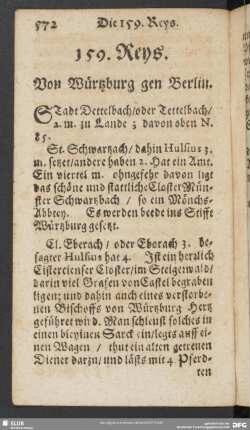 572 Die 159. Reys.
159. Reys.
Von Würtzburg gen Berlin.
STadt Dettelbach/oder Tettelbach/
2. m. zu Lande; davon oben N.
85.
St. Schwartzach/ dahin Hulsius 3.
m. setzet/andere haben 2. Hat ein Amt.
Ein viertel m. ohngefehr davon ligt
das schöne und stattliche Closter Mün-
ster Schwartzbach / so ein Mönchs-
Abbtey. Es werden beede ins Stifft
Würtzburg gesetzt.
Cl. Eberach / oder Eborach 3. be-
sagter Hulsius hat 4. Ist ein herzlich
Cistercienser Closter/im Steigerwald/
darin viel Grafen von Castel begraben
ligen; und dahin auch eines verstorbe-
nen Bischoffs von Würtzburg Hertz
geführet wird. Man schleust solches in
einen bleyinen Sarck ein/legts auff ei-
nen Wagen / thut ein alten getreuen
Diener darzu/ und läst mit 4 Pferd-
ten
SLUB